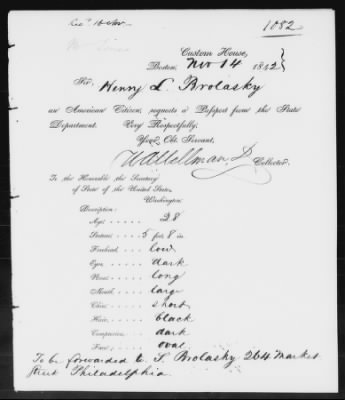 1082
Custom House,
Boston, Nov 14 1842
Sir,
Henry L. Brolasky
an American Citizen, requests a Passport from the State
Department. Very Respectfully,
Your Obt. Servant,
Collector.
To the Honorable the Secretary
of State of the United States,
Washington.
Description:
Age, . . . . . 28
Stature, . . . . 5 feet, 8 in.
Forehead, . . . . low
Eyes, . . . . . dark
Nose, . . . . . long
Mouth, . . . . large
Chin, . . . . . short
Hair, . . . . . black
Complexion, . . . . dark
Face, . . . . . oval
To be forwarded to S. Brolasky 264 Market
Street Philadelphia.